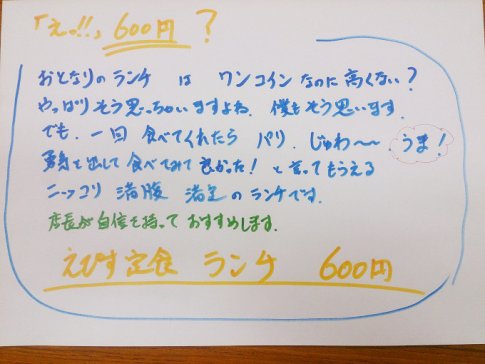 「えっ!!」600円?
おとなりのランチ は ワンコインなのに 高くない?
やっぱりそう思っちゃいますよね. 僕もそう思います.
でも. 一回 食べてくれたら パリ. じゅわ〜〜. うま!
勇気を出して食べてみて良かった! と言ってもらえる
ニッコリ 満腹 満足 のランチです.
店長が自信を持って おすすめします.
えびす定食 ランチ 600円